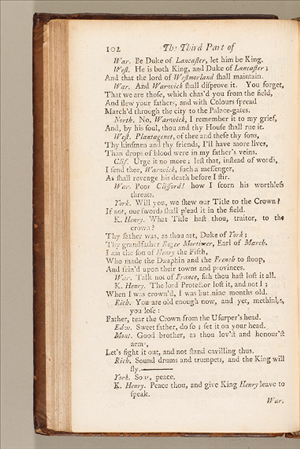 102 The Third Part of
War. Be Duke of Lancaster, let him be King.
West. He is both King, and Duke of Lancaster;
And that the lord of Westmerland shall maintain.
War. And Warwick shall disprove it. You forget,
That we are those, which chas'd you from the field,
And slew your fathers, and with Colours spread
March'd through the city to the Palace-gates.
North. No, Warwick, I remember it to my grief,
And, by his soul, thou and thy House shall rue it.
West. Plantagenet, of thee and these thy sons,
Thy kinsmen and thy friends, I'll have more lives,
Than drops of blood were in my father's veins.
Clif. Urge it no more; lest that, instead of words,
I send thee, Warwick, such a messenger,
As shall revenge his death before I stir.
War. Poor Clifford! how I scorn his worthless
threats.
York. Will you, we shew our Title to the Crown?
If not, our swords shall plead it in the field.
K. Henry. What Title hast thou, traitor, to the
crown?
Thy father was, as thou art, Duke of York;
Thy grandfather Roger Mortimer, Earl of March.
I am the son of Henry the Fifth,
Who made the Dauphin and the French to stoop,
And seiz'd upon their towns and provinces.
War. Talk not of France, sith thou hast lost it all.
K. Henry. The lord Protector lost it, and not I;
When I was crown'd, I was but nine months old.
Rich. You are old enough now, and yet, methinks,
you lose:
Father, tear the Crown from the Usurper's head.
Edw. Sweet father, do so; set it on your head.
Mont. Good brother, as thou lov'st and honour'st
arms,
Let's fight it out, and not stand cavilling thus.
Rich. Sound drums and trumpets, and the King will
fly.
York. Sons, peace.
K. Henry. Peace thou, and give King Henry leave to
speak.
War.